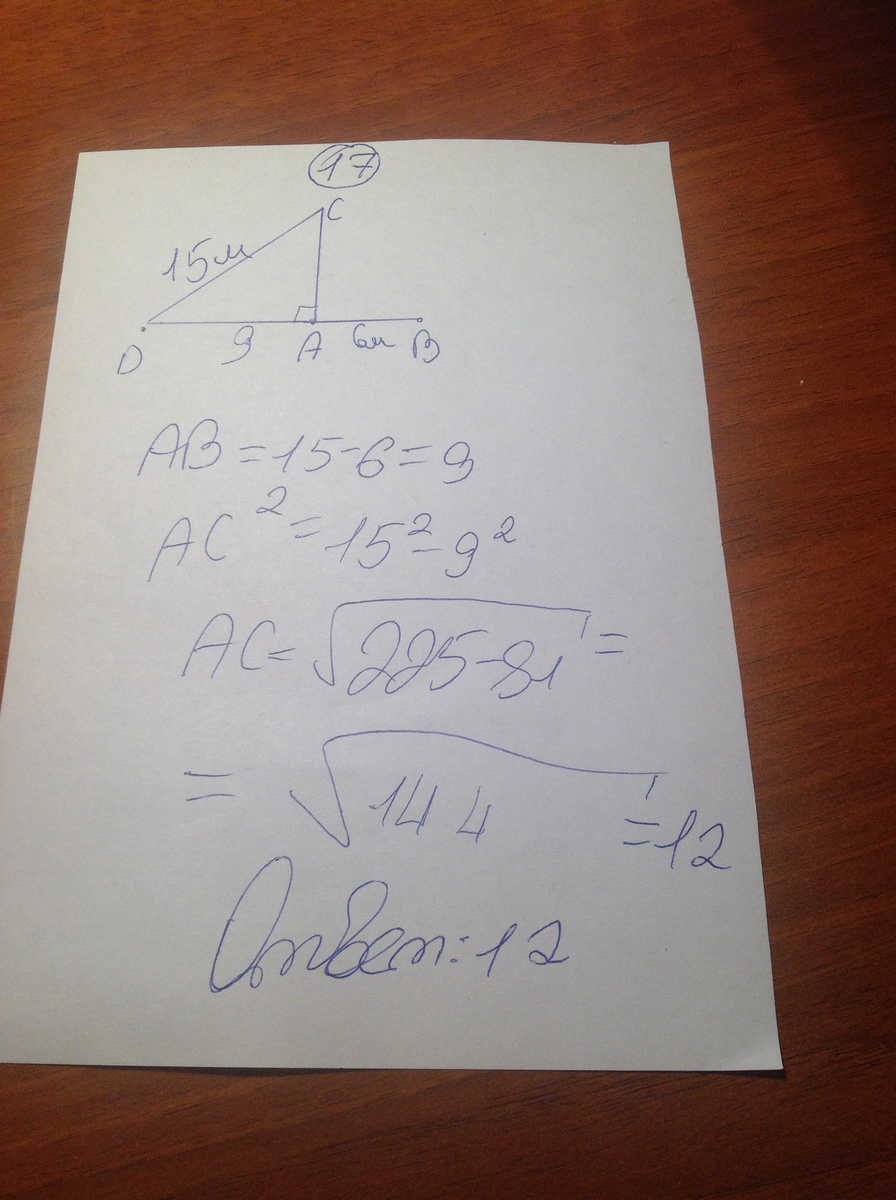 17
C
15м
D 9 A 6м B
AB = 15 - 6 = 9
AC² = 15² - 9²
AC = √225 - 81 =
= √144 = 12
Ответ: 12